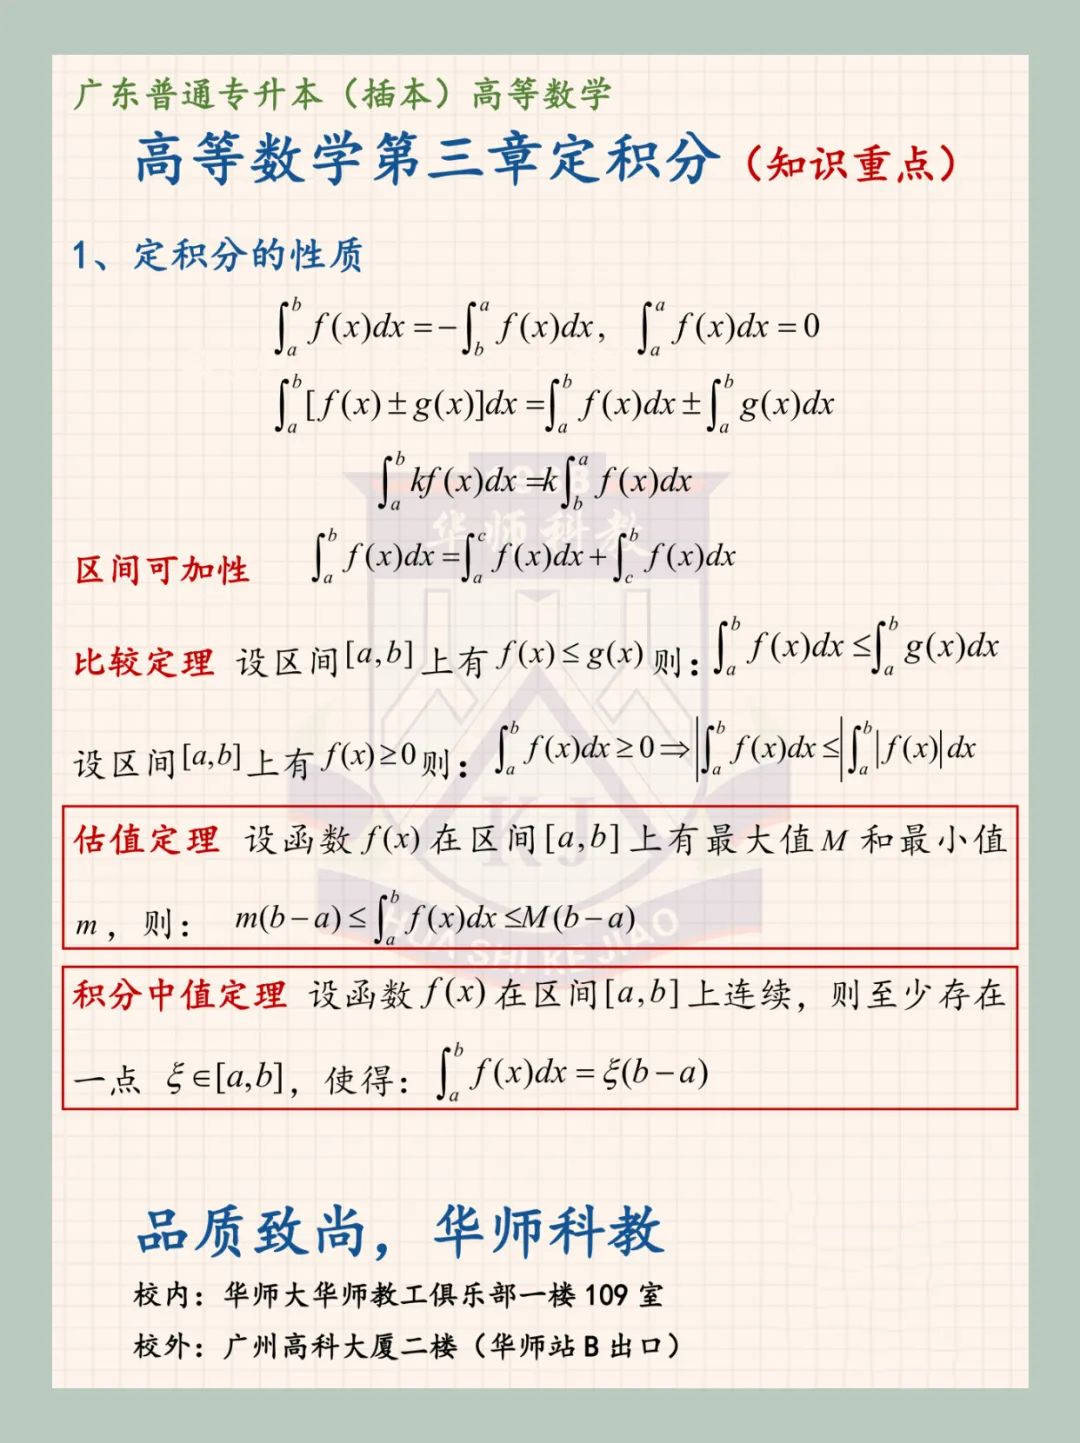 广东普通专升本（插本）高等数学
高等数学第三章定积分（知识重点）
1、定积分的性质
∫_a^b f(x)dx = -∫_b^a f(x)dx, ∫_a^a f(x)dx = 0
∫_a^b [f(x) ± g(x)]dx = ∫_a^b f(x)dx ± ∫_a^b g(x)dx
∫_a^b kf(x)dx = k∫_b^a f(x)dx
区间可加性 ∫_a^b f(x)dx = ∫_a^c f(x)dx + ∫_c^b f(x)dx
比较定理 设区间[a,b]上有 f(x) ≤ g(x) 则：∫_a^b f(x)dx ≤ ∫_a^b g(x)dx
设区间[a,b]上有 f(x) ≥ 0 则：∫_a^b f(x)dx ≥ 0 ⇒ |∫_a^b f(x)dx| ≤ |∫_a^b |f(x)|dx
估值定理 设函数 f(x) 在区间[a,b]上有最大值 M 和最小值
m，则： m(b-a) ≤ ∫_a^b f(x)dx ≤ M(b-a)
积分中值定理 设函数 f(x) 在区间[a,b]上连续，则至少存在
一点 ξ∈[a,b]，使得：∫_a^b f(x)dx = ξ(b-a)
华师科教
KJ
HUA SHI KE JIAO
品质致尚，华师科教
校内：华师大华师教工俱乐部一楼 109 室
校外：广州高科大厦二楼（华师站 B 出口）